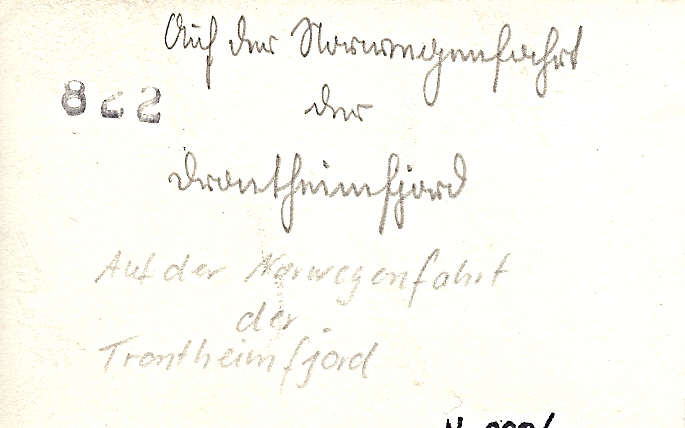 Auf der Norwegenfahrt
822
der
Drontheimfjord
Auf der Norwegenfahrt
der
Trontheimfjord